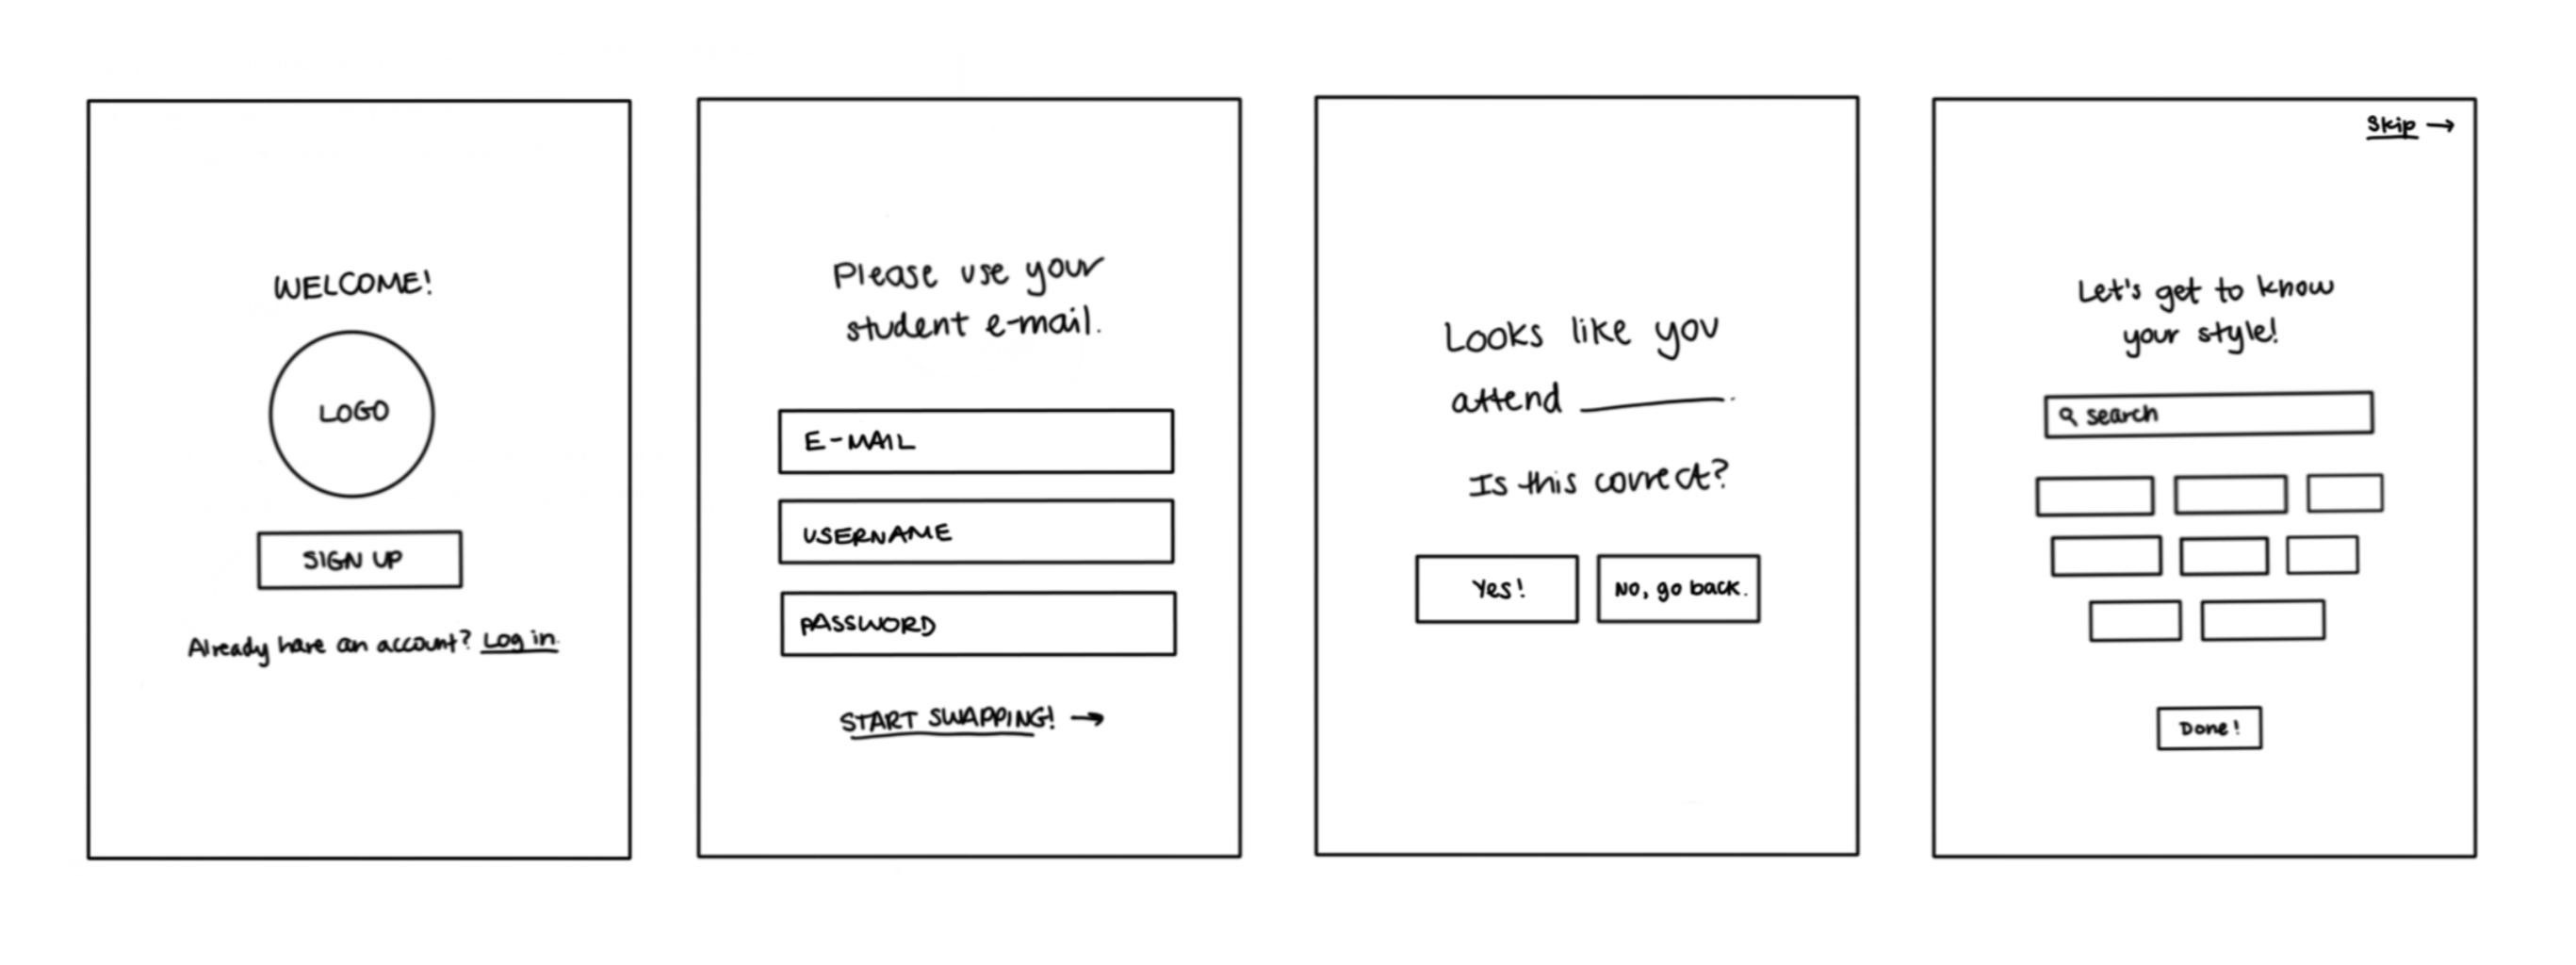 WELCOME!
LOGO
SIGN UP
Already have an account? Log in.
Please use your
student e-mail.
E-MAIL
USERNAME
PASSWORD
START SWAPPING! →
Looks like you
attend ______.
Is this correct?
Yes!
No, go back.
Skip →
Let's get to know
your style!
search
Done!